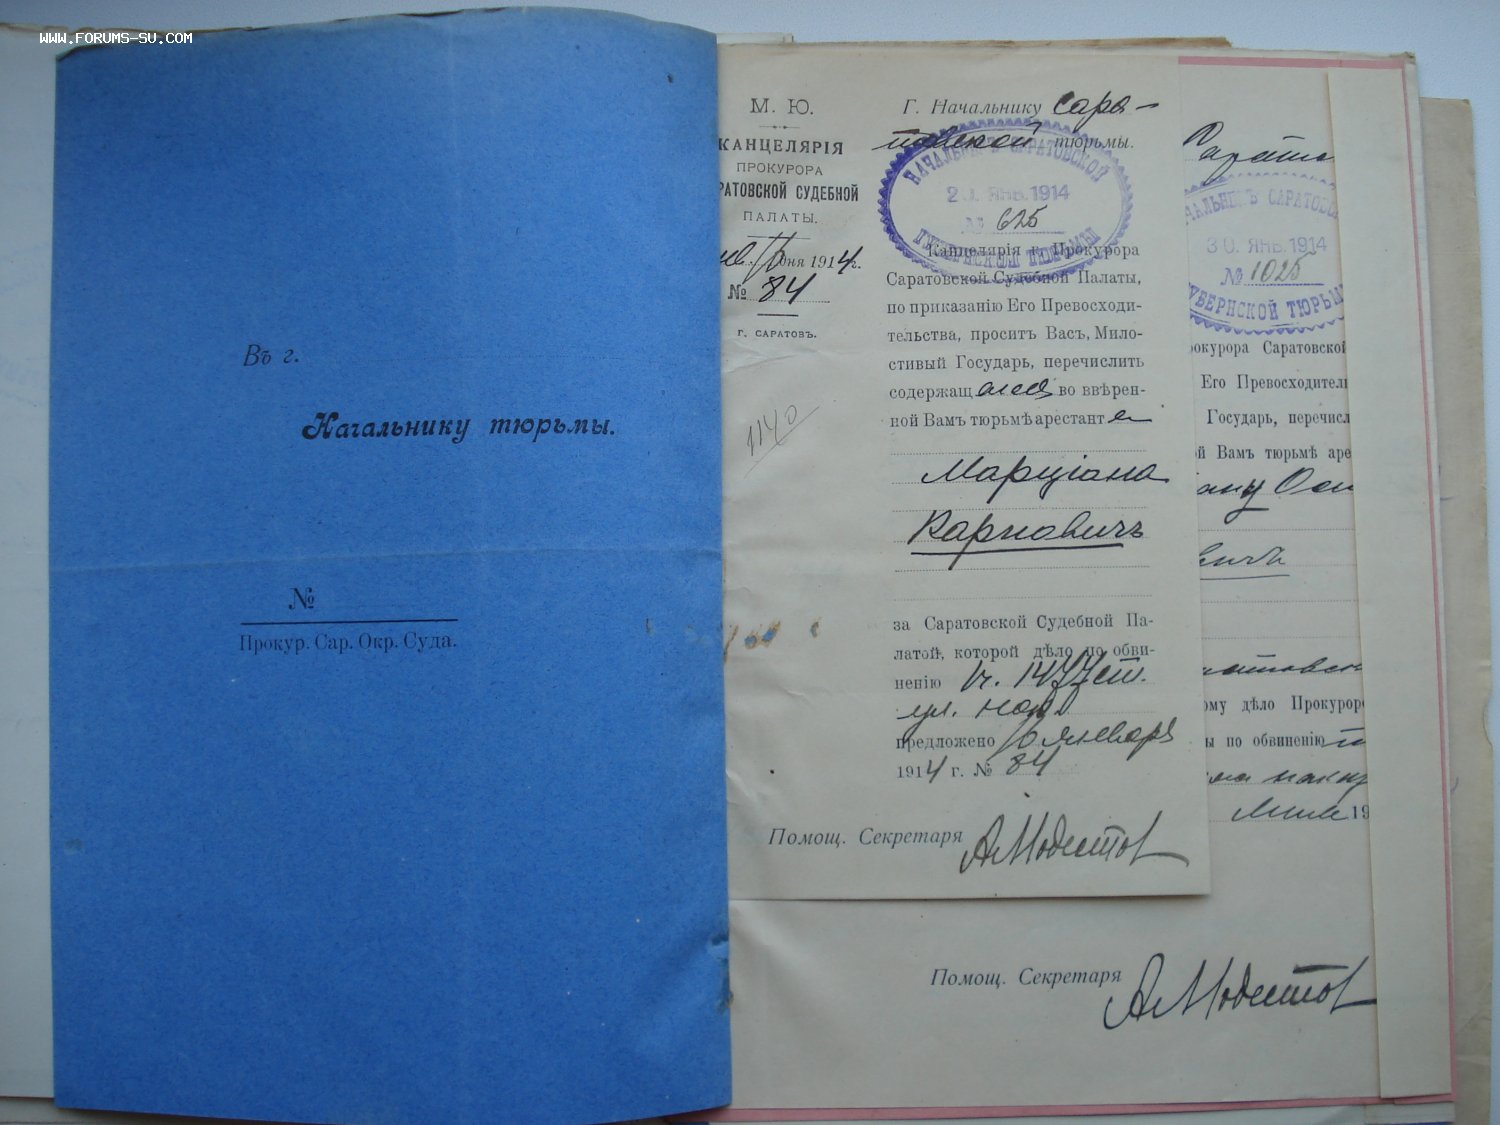 WWW.FORUMS-SU.COM
Въ г.
Начальнику тюрьмы.
№
Прокур. Сар. Окр. Суда.
М. Ю.
КАНЦЕЛЯРІЯ
ПРОКУРОРА
РАТОВСКОЙ СУДЕБНОЙ
ПАЛАТЫ.
дня 1914г.
№ 84
Г. САРАТОВЪ.
1140
Г. Начальнику Сара-
товской тюрьмы.
НАЧАЛЬНИКЪ САРАТОВСКОЙ
20. ЯНВ. 1914
№ 625
ГУБЕРНСКОЙ ТЮРЬМЫ
Канцелярія г. Прокурора
Саратовской Судебной Палаты,
по приказанію Его Превосходи-
тельства, проситъ Васъ, Мило-
стивый Государь, перечислить
содержащ во ввѣрен-
ной Вамъ тюрьмѣ арестант
Марціана
Карповичъ
за Саратовской Судебной Па-
латой, которой дѣло по обви-
ненію 1 ч. 1477 ст.
ул. нак.
предложено 16 января
1914 г. № 84
Помощ. Секретаря АМодестов
Сарато
ЧАЛЬНИКЪ САРАТОВС
30. ЯНВ. 1914
№ 1025
ГУБЕРНСКОЙ ТЮРЬМЫ
рокурора Саратовской
Его Превосходител
Государь, перечисл
й Вамъ тюрьмѣ аре
вичъ
ому дѣло Прокурор
ы по обвиненію
19
Помощ. Секретаря
АМодестов